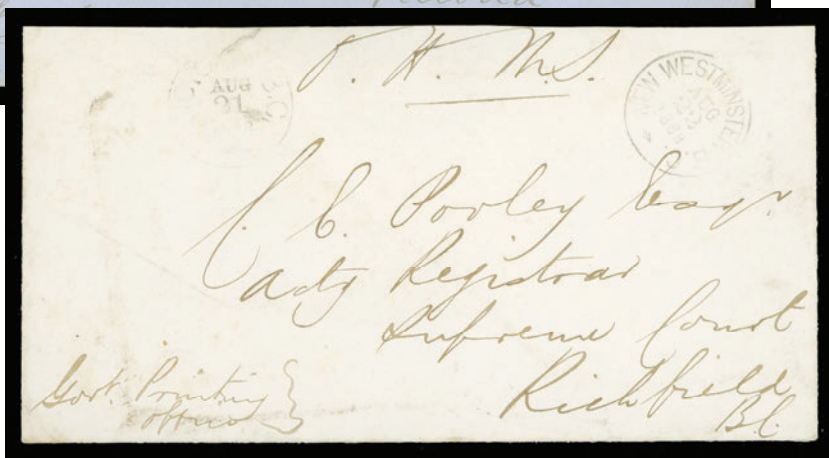 O. H. M. S.
B.C.
AUG
21
NEW WESTMINSTER B.
AUG
22
C. E. Pooley Esqr.
Actg Registrar
Supreme Court
Richfield
B.C.
Govt. Printing
Office